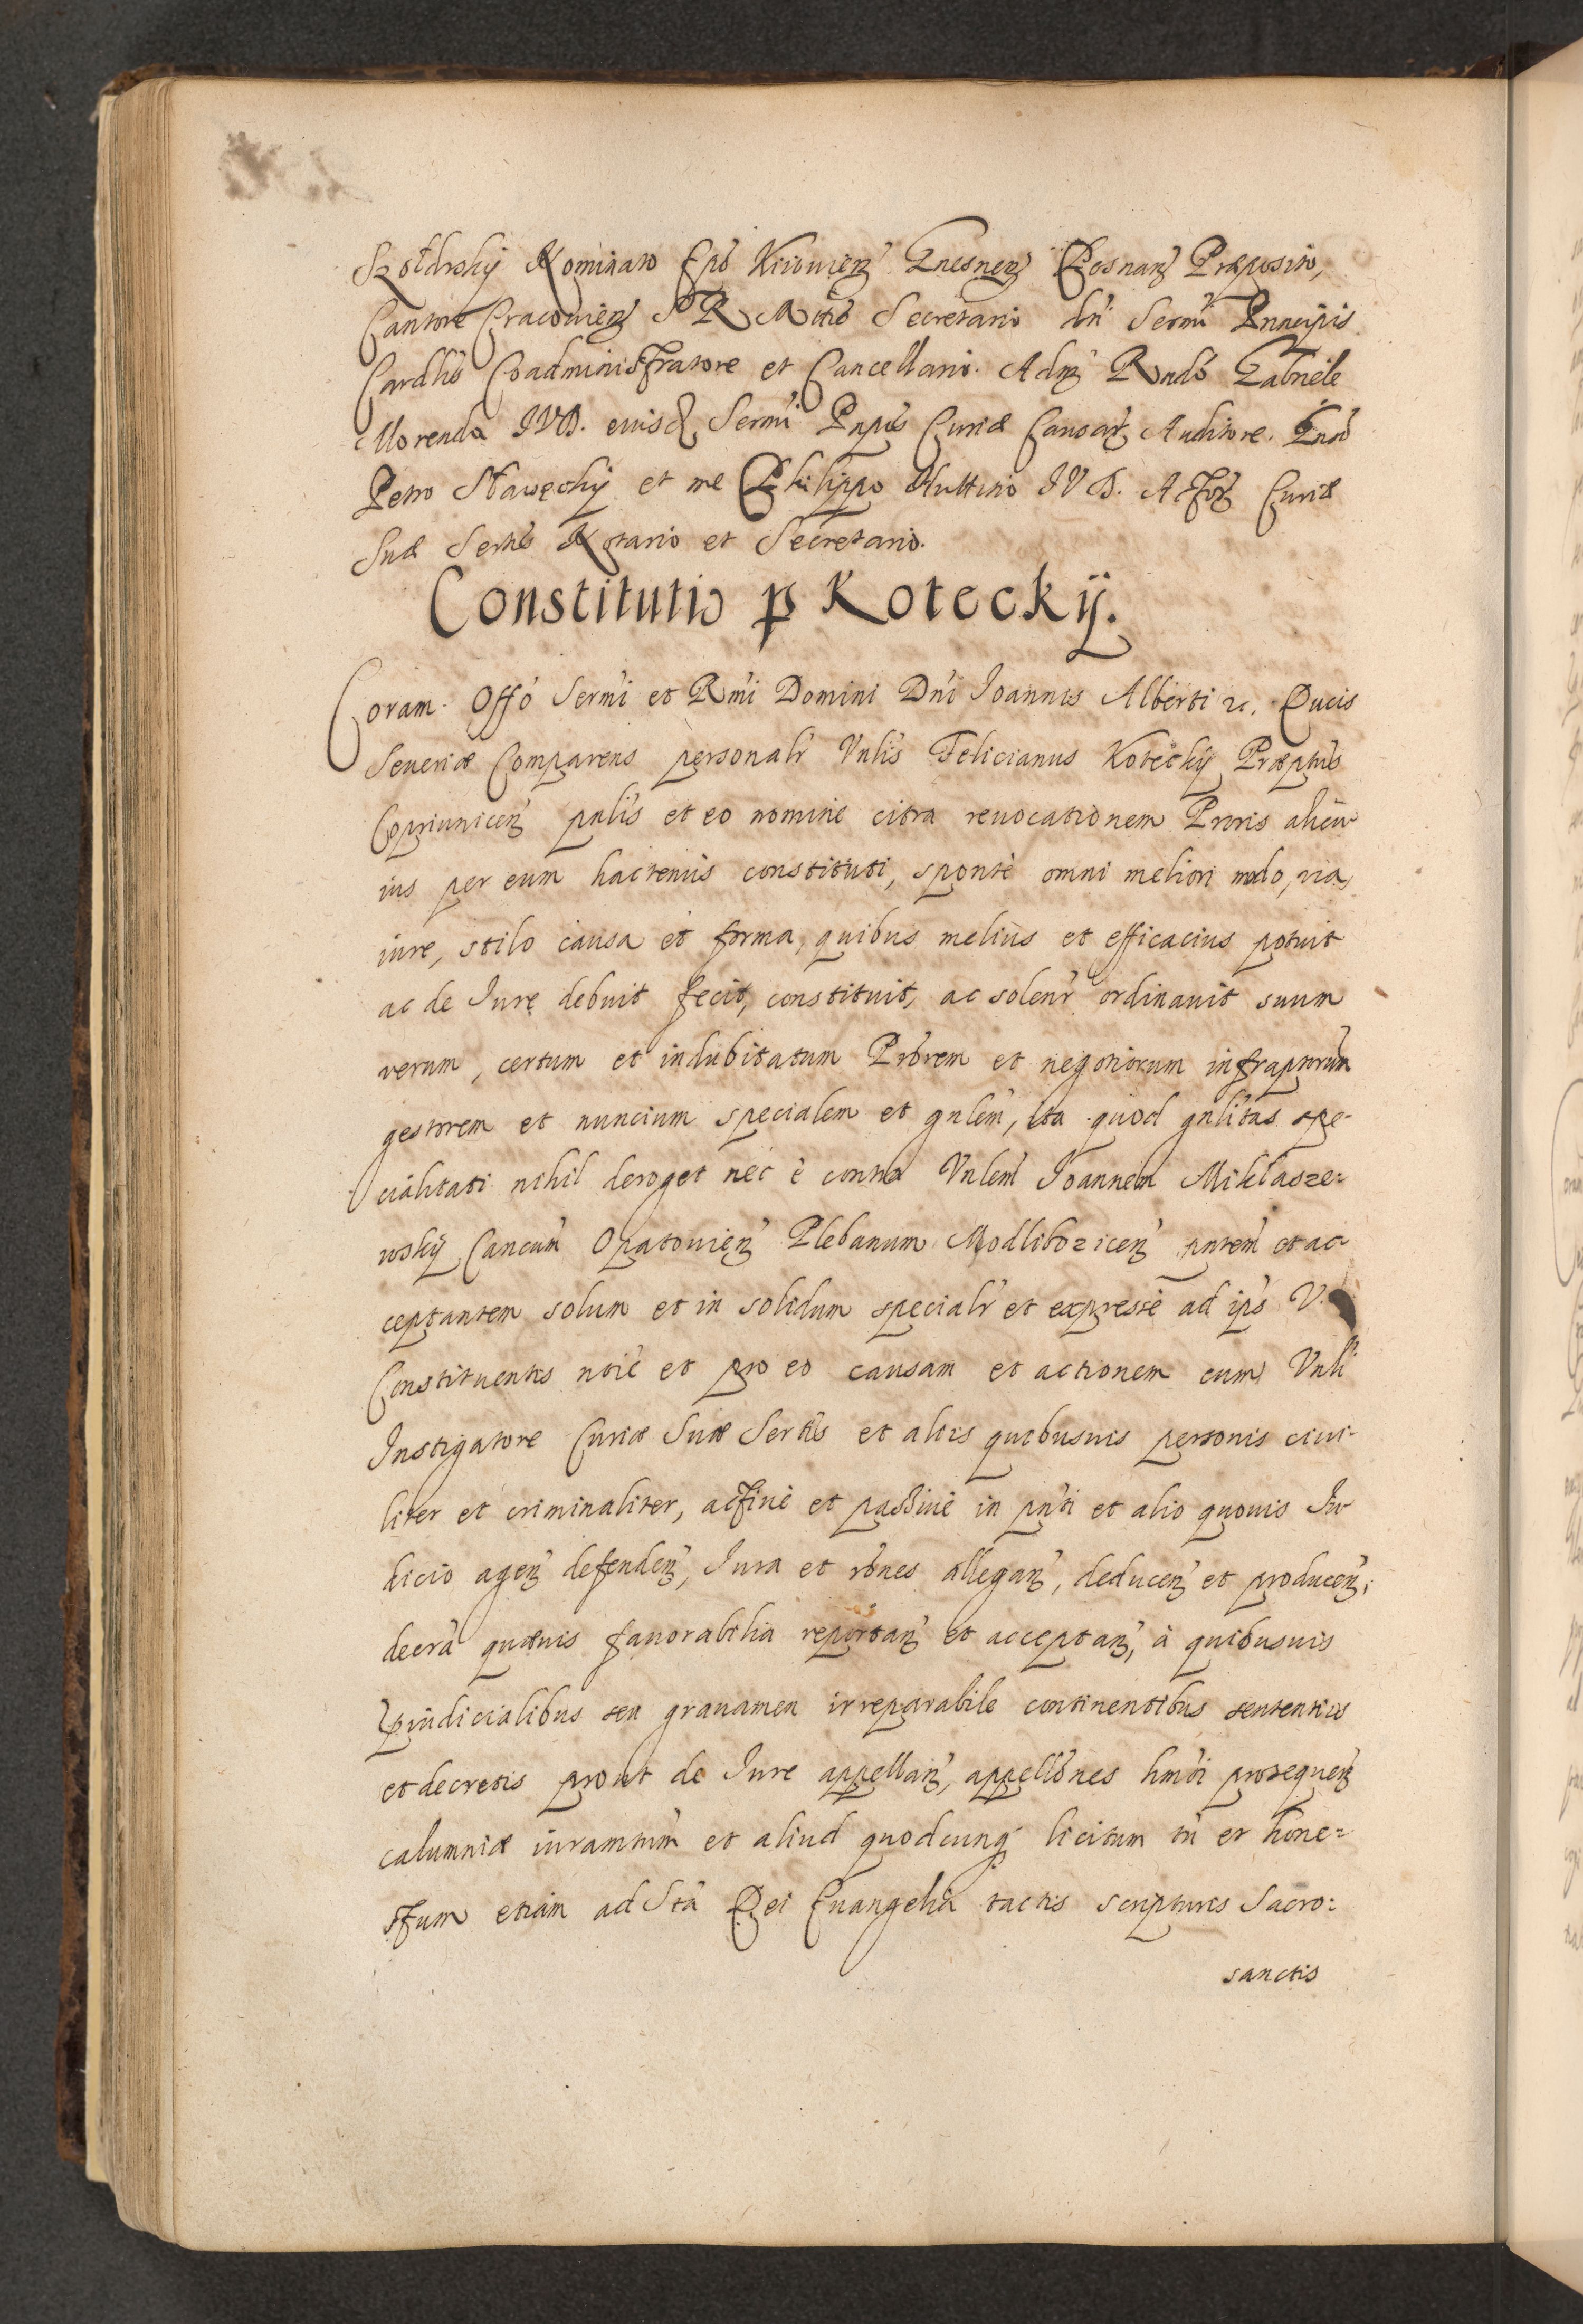 Szołdrskÿ Nominato Epõ Kiiouien̄ Gnesnen̄ Posnan̄ Præposito,
Cantore Cracouien̄ S R Mtis Secretario dn̄i Sermi Principis
Cardlis Coadministratore et Cancellario. Adm̄ Rndo Gabriele
Morenda IVD. eiusđ Sermi Pnpis Curiæ Causar̄ Auditore. Gnoso
Petro Nawęckÿ et me Philippo Huttinio IVD. Actor̄ Curiæ
Suæ Sertis Notario et Secretario.
Constitutio p Koteckÿ.
Coram Offo Sermi et Rmi Domini Dni Ioannis Alberti ꝛc. Ducis
Seueriæ Comparens personalr Vnlis Felicianus Koteckÿ Præptus
Copriunicen̄ pnlis et eo nomine citra reuocationem Proris alicu
ius per eum hactenus constituti, spontè omni meliori modo, via,
iure, stilo causa et forma, quibus melius et efficacius potuit
ac de Iure debuit fecit, constituit, ac solenr ordinauit suum
verum, certum et indubitatum Prorem et negotiorum infraptorum
gestorem et nuncium specialem et gnlem, ita quod gnlitas spe-
cialitati nihil deroget nec è contra Vnlem Ioannem Mikłasze-
wskÿ Cancum Opatouien̄ Plebanum Modlibozicen̄ pntem et ac-
ceptantem solum et in solidum specialr et expressè ad ips V.
Constituentis noie et pro eo causam et actionem cum Vnli
Instigatore Curiæ Suæ Sertis et aliis quibusuis personis ciui-
liter et criminaliter, actiuè et passiuè in pnti et alio quouis Iu-
dicio agen̄ defenden̄, Iura et rones allegan̄, deducen̄ et producen̄,
decra quæuis fauorabilia reportan̄ et acceptan̄, à quibusuis
Præiudicialibus seu grauamen irreparabile continentibus sententiis
et decretis prout de Iure appellan̄, appellones hmoi prosequen̄
calumniæ iuramtum et aliud quodcunq licitum tn et hone-
stum etiam ad Sta Dei Euangelia tactis scripturis Sacro:
sanctis